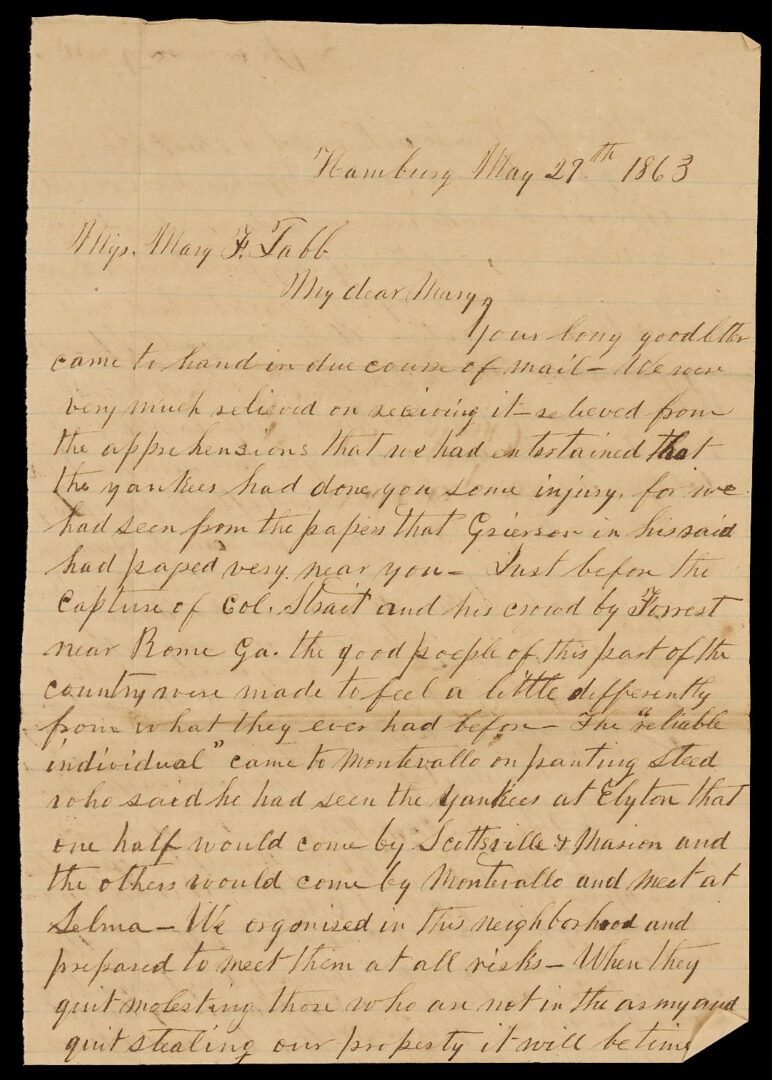 Hamburg May 29th 1863
Mrs. Mary F. Tabb
My dear Mary,
Your long good letter
came to hand in due course of mail - We were
very much relieved on receiving it - relieved from
the apprehensions that we had entertained that
the yankees had done you some injury, for we
had seen from the papers that Grierson in his raid
had passed very near you - Just before the
Capture of Col. Strait and his crowd by Forrest
near Rome Ga. the good people of this part of the
country were made to feel a little differently
from what they ever had before - The "reliable
individual" came to Montevallo on panting steed
who said he had seen the yankees at Elyton that
one half would come by Scottsville & Marion and
the others would come by Montevallo and meet at
Selma - We organised in this neighborhood and
prepared to meet them at all risks - When they
quit molesting those who are not in the army and
quit stealing our property it will be time